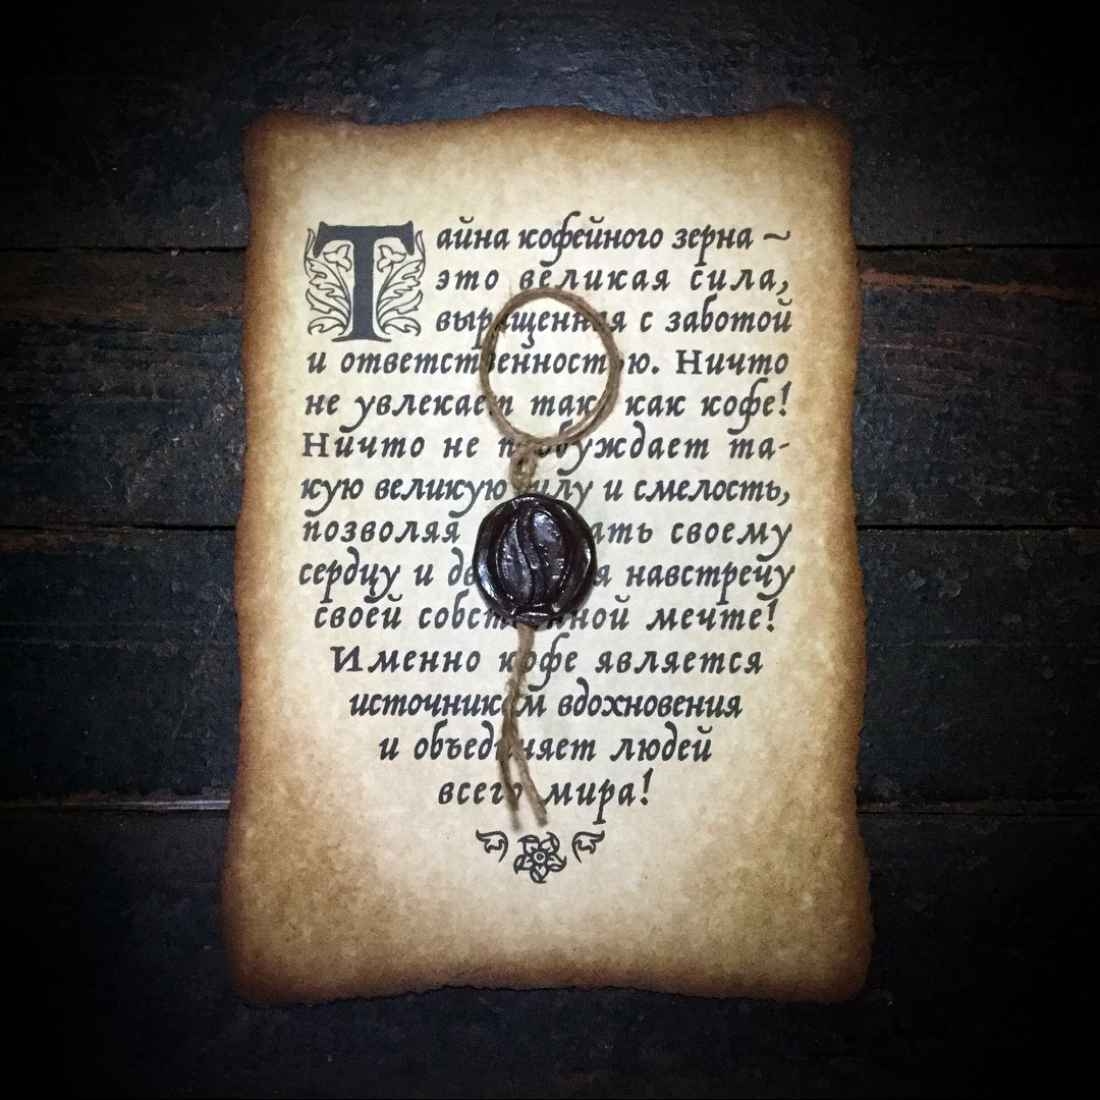 Тайна кофейного зерна ~
это великая сила,
выращенная с заботой
и ответственностью. Ничто
не увлекает так, как кофе!
Ничто не пробуждает та-
кую великую силу и смелость,
позволяя своему
сердцу и навстречу
своей собственной мечте!
Именно кофе является
источником вдохновения
и объединяет людей
всего мира!